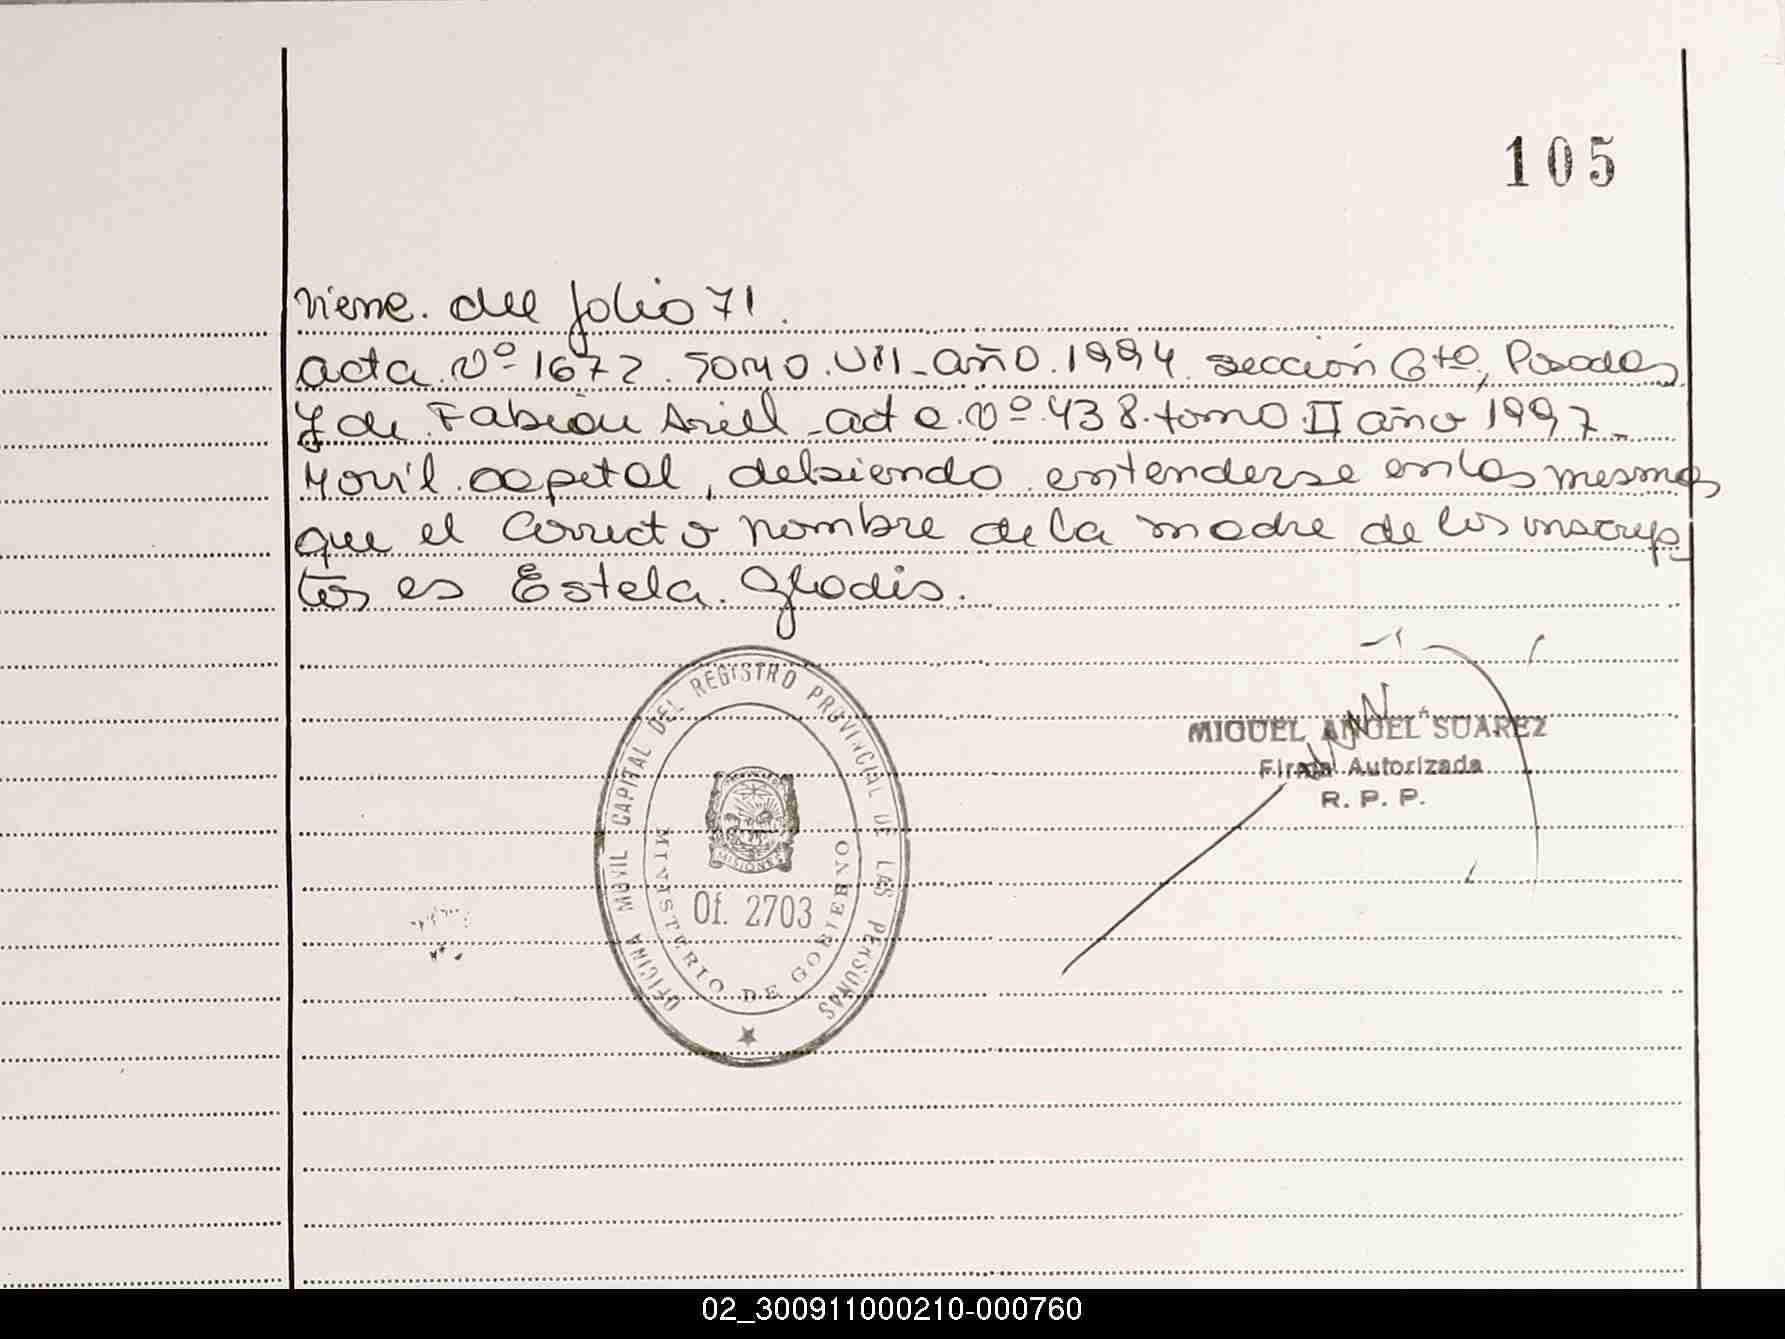 105
Viene. del folio 71.
acta Nº 1672. Tomo. VII - año. 1994. sección 6ta, Posadas
y de Fabián Ariel - acta Nº 438. tomo II año 1997 -
Movil capital, debiendo entenderse en los mismos
que el correcto nombre de la madre de los inscrip
tos es Estela. Gladis.
OFICINA MOVIL CAPITAL DEL REGISTRO PROVINCIAL DE LAS PERSONAS
MISIONES
Of. 2703
MINISTERIO DE GOBIERNO
MIGUEL ANGEL SUAREZ
Firma Autorizada
R. P. P.
02_300911000210-000760